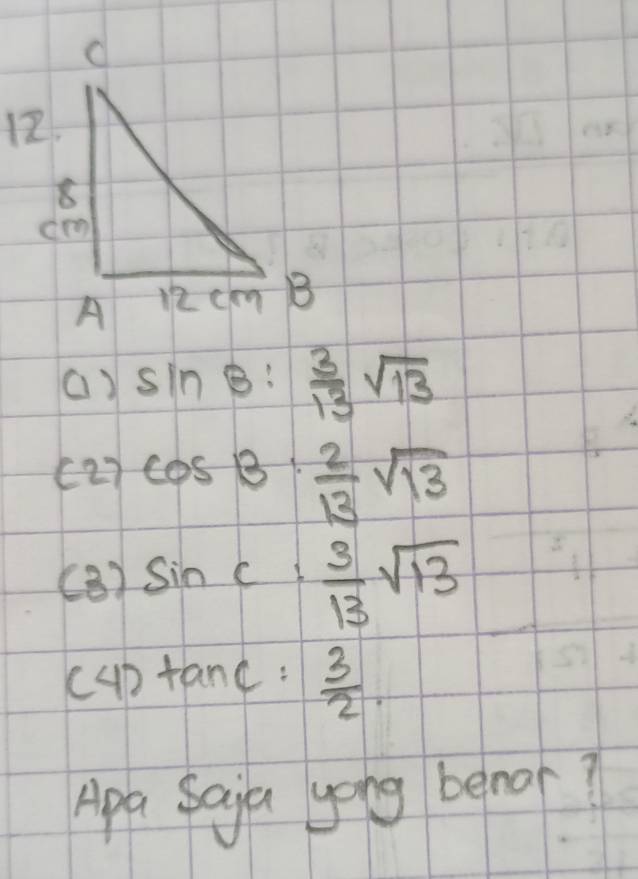 C
12.
8
cm
A 12 cm B
(1) sin B : 3/13 √13
(2) cos B : 2/13 √13
(3) Sin C : 3/13 √13
(4) tan C : 3/2.
Apa Saja yang benar?